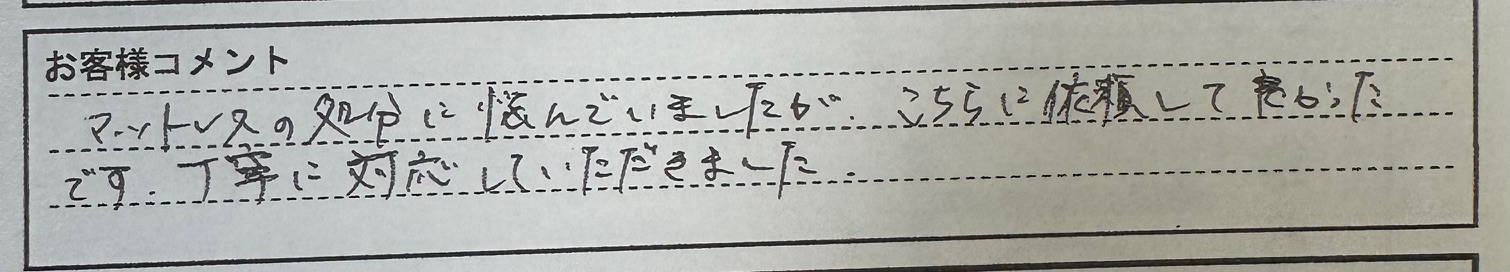 お客様コメント
マットレスの処分に悩んでいましたが、こちらに依頼して良かった
です。丁寧に対応していただきました。